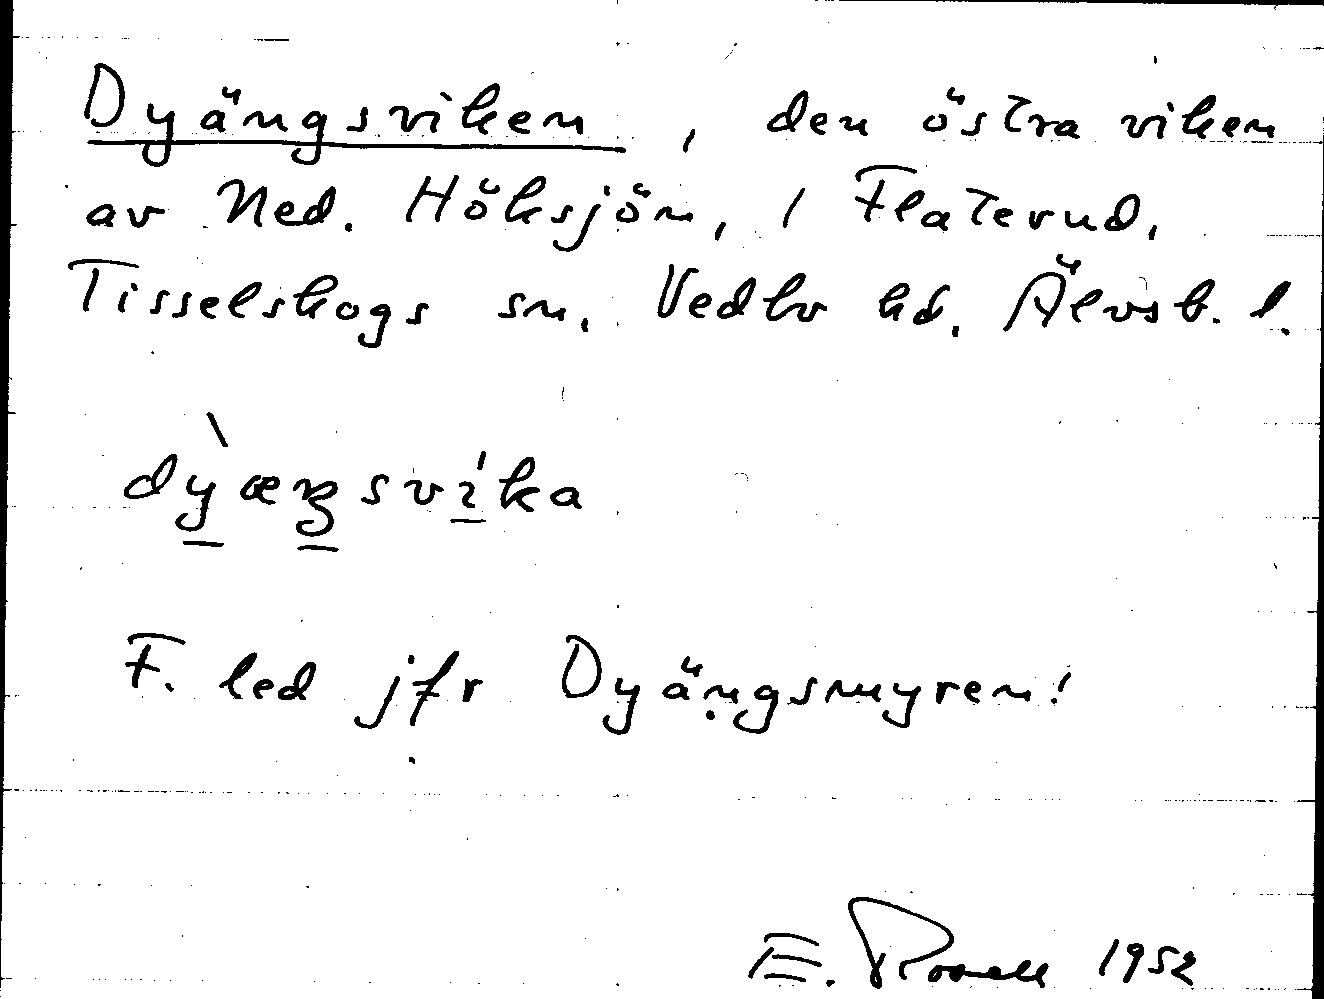 Dyängsviken, den östra viken
av Ned. Höksjön, i Flaterud,
Tisselskogs sn. Vedbo hd. Älvsb. l.
dỳæŋsvíka
F. led jfr Dyängsmyren!
E. Rosell 1952